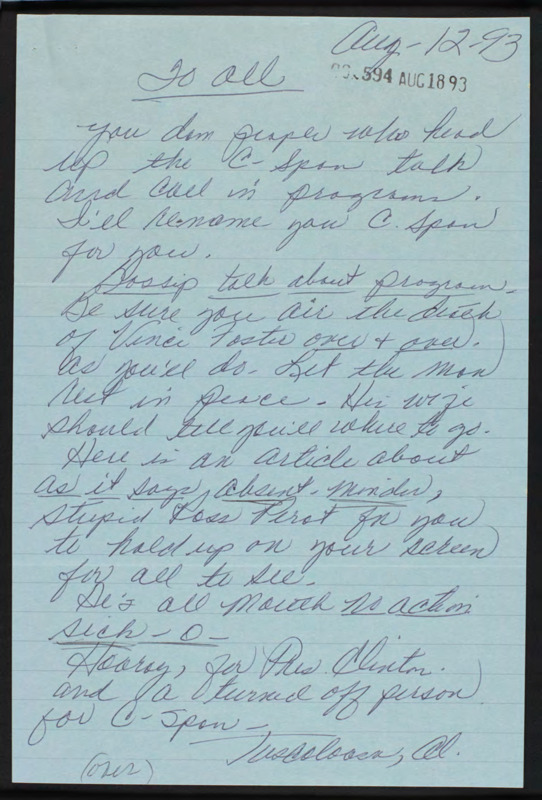 Aug-12-93
594 AUG 18 93
To all
you dum peaple who head
up the C-Span talk
and call in programs.
I'll rename you C. Span
for you.
Gossip talk about program.
Be sure you air the death
of Vince Foster over + over.
as you'll do. Let the man
rest in peace. His wife
should tell you'll where to go.
Here is an article about
as it says, absent-minder,
stupid Ross Perot for you
to hold up on your screen
for all to see.
He's all mouth no action
sick-o-
Hooray, for Pres Clinton.
and a turned off person
for C-Span-
Tuscaloosa, Al.
(over)